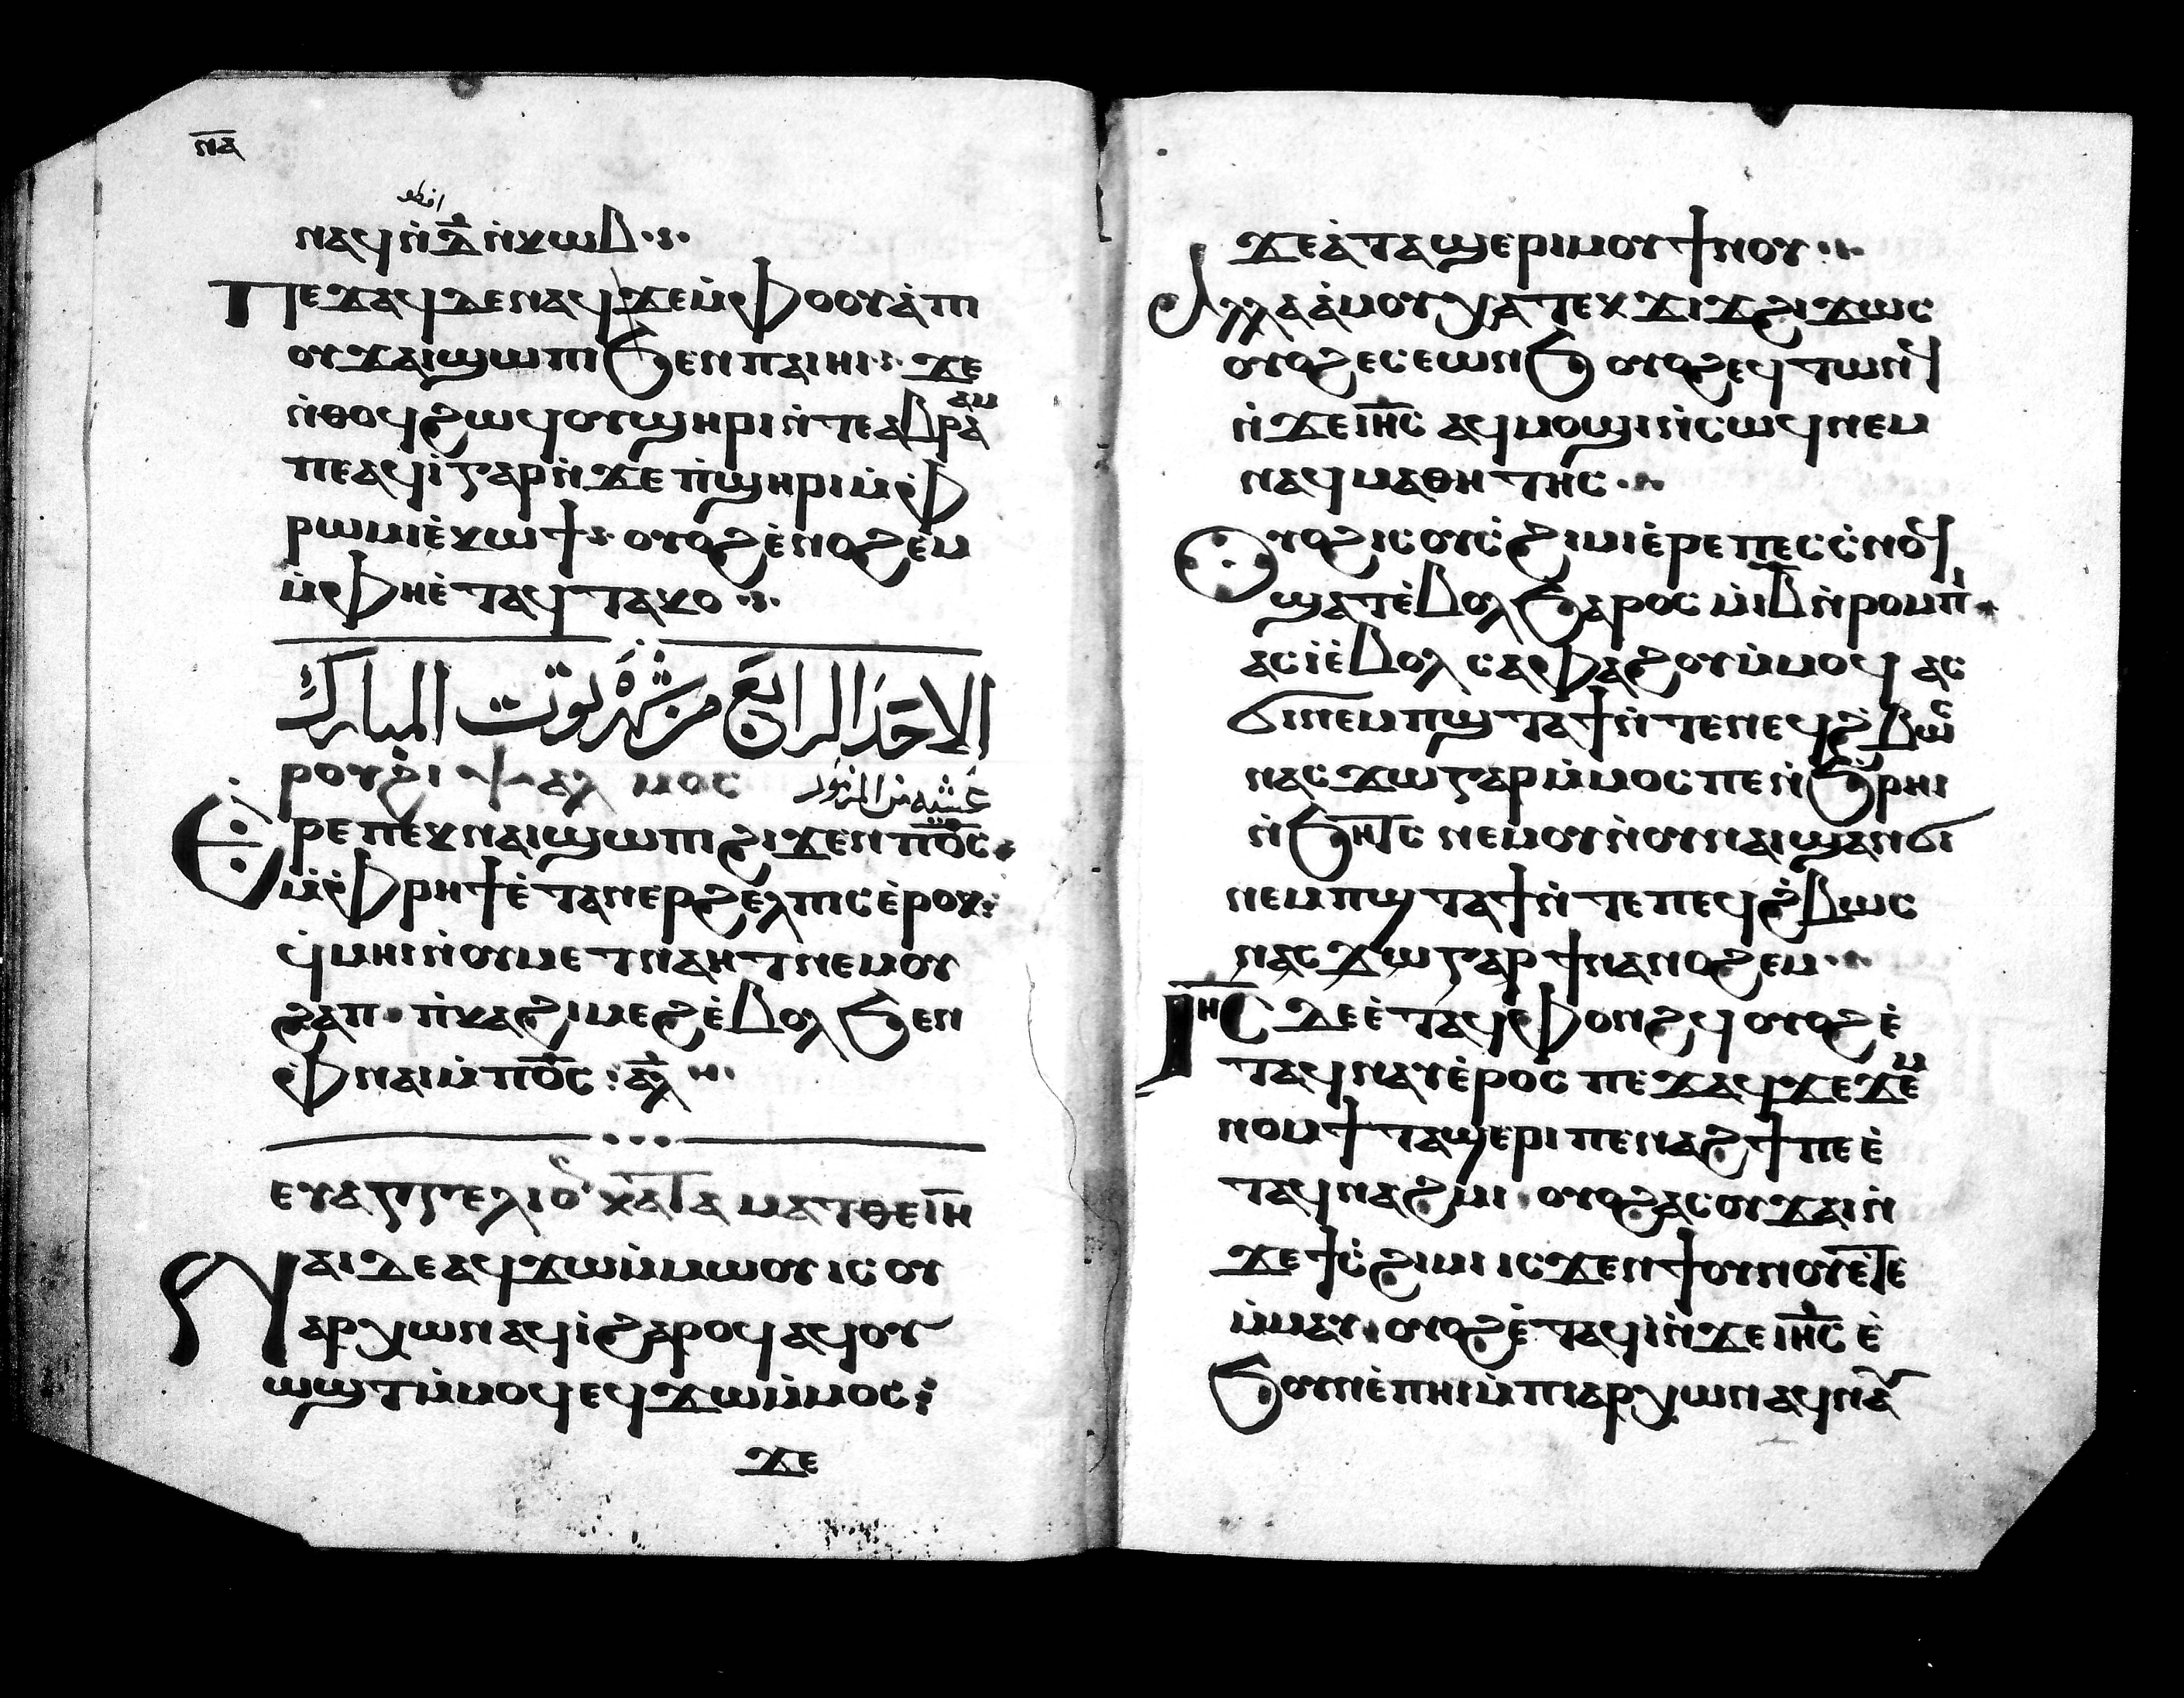 ⲛⲁ
افطو
ⲛⲁϥⲛ̀ⲇ̅ⲛ̀ⲕⲱⲃ
Ⲡⲉϫⲁϥⲇⲉⲛⲁϥϫⲉⲙ̀ⲫⲟⲟⲩⲁ̀ⲡⲓ
ⲟⲩϫⲁⲓϣⲱⲡⲓϧⲉⲛⲡⲁⲓⲏⲓ ϫⲉ
ⲛ̀ⲑⲟϥϩⲱϥⲟⲩϣⲏⲣⲓⲛ̀ⲧⲉⲁⲃⲣⲁ̀ⲁⲙ
ⲡⲉⲁϥⲓ̀ⲅⲁⲣⲛ̀ϫⲉⲡ̀ϣⲏⲣⲓⲙ̀ⲫ
ⲣⲱⲙⲓⲉ̀ⲕⲱϯ ⲟⲩⲟϩⲉ̀ⲛⲟϩⲉⲙ
ⲙ̀ⲫⲏⲉ̀ⲧⲁϥⲧⲁⲕⲟ
الاحد الرابع من شهر توت المبارك
ⲣⲟⲩϩⲓ ⲯⲁⲗⲙⲟⲥ عشيه من المزمور
Ⲉⲣⲉⲡⲉⲕⲛⲁⲓϣⲱⲡⲓϩⲓϫⲉⲛⲡ⳪
ⲙ̀ⲫⲣⲏϯⲉ̀ⲧⲁⲛⲉⲣϩⲉⲗⲡⲓⲥⲉ̀ⲣⲟⲕ
ϥⲙⲏⲓⲛ̀ⲟⲩⲙⲉⲧⲛⲁⲏⲧⲛⲉⲙⲟⲩ
ϩⲁⲡ ⲡ̀ⲕⲁϩⲓⲙⲉϩⲉ̀ⲃⲟⲗϧⲉⲛ
ⲫⲛⲁⲓⲙ̀ⲡ⳪ ⲁⲗ
ⲉⲩⲁⲅⲅⲉⲗⲓⲟ ⲕⲁⲧⲁ ⲙⲁⲧⲑⲉⲓⲏ
Ⲛⲁⲓⲇⲉⲁϥϫⲱⲙ̀ⲙⲱⲟⲩ ⲓⲥ ⲟⲩ
ⲁⲣⲭⲱⲛⲁϥⲓ̀ϩⲁⲣⲟϥⲁϥⲟⲩ
ⲱϣⲧⲙ̀ⲙⲟϥⲉϥϫⲱⲙ̀ⲙⲟⲥ
ϫⲉ
ϫⲉⲁ̀ⲧⲁϣⲉⲣⲓⲙⲟⲩϯⲛⲟⲩ
Ⲁⲗⲗⲁⲁ̀ⲙⲟⲩⲭⲁⲧⲉⲕϫⲓϫϩⲓϫⲱⲥ
ⲟⲩⲟϩⲉⲥⲉⲱⲛϧ ⲟⲩⲟϩⲉϥⲧⲱⲛϥ
ⲛ̀ϫⲉⲓⲏ̅ⲥ ⲁϥⲙⲟϣⲓⲛ̀ⲥⲱϥⲛⲉⲙ
ⲛⲁϥⲙⲁⲑⲏⲧⲏⲥ
Ⲟⲩⲟϩⲓⲥⲟⲩⲥ̀ϩⲓⲙⲓⲉ̀ⲣⲉⲡⲉⲥⲥ̀ⲛⲟϥ
ϣⲁⲧⲉ̀ⲃⲟⲗϧⲁⲣⲟⲥ ⲙ̀ⲓ̅ⲃ̅ⲛ̀ⲣⲟⲙⲡⲓ
ⲁⲥⲓ̀ⲉ̀ⲃⲟⲗ ⲥⲁⲫⲁϩⲟⲩⲙ̀ⲙⲟϥ ⲁⲥ
ϭⲓⲛⲉⲙⲡϣⲧⲁϯⲛ̀ⲧⲉⲡⲉϥϩ̀ⲃⲱⲥ
ⲛⲁⲥϫⲱⲅⲁⲣⲙ̀ⲙⲟⲥⲡⲉⲛ̀ϧ̀ⲣⲏⲓ
ⲛ̀ϧⲏⲧⲥ ⲛⲉⲙⲟⲩⲛ̀ⲟⲩⲛⲁⲓϣⲁⲛϭⲓ
ⲛⲉⲙⲡϣⲧⲁϯⲛ̀ⲧⲉⲡⲉϥϩ̀ⲃⲱⲥ
ⲛⲁⲥϫⲱⲅⲁⲣϯⲛⲁⲛⲟϩⲉⲙ
Ⲓⲏ̅ⲥ ⲇⲉⲉ̀ⲧⲁϥⲫⲟⲛϩϥ ⲟⲩⲟϩⲉ̀
ⲧⲁϥⲛⲁⲩⲉ̀ⲣⲟⲥ ⲡⲉϫⲁϥϫⲉϫⲉⲙ
ⲛⲟⲙϯⲧⲁϣⲉⲣⲓⲡⲉⲛⲁϩϯⲡⲉⲉ̀
ⲧⲁϥⲛⲁϩⲙⲓ ⲟⲩⲟϩⲁⲥⲟⲩϫⲁⲓⲛ̀
ϫⲉϯⲥ̀ϩⲓⲙⲓ ⲓⲥϫⲉⲛϯⲟⲩⲛⲟⲩⲉⲧⲉ
ⲙ̀ⲙⲁⲩ ⲟⲩⲟϩⲉ̀ⲧⲁϥⲓ̀ⲛ̀ϫⲉⲓⲏ̅ⲥ ⲉ̀
ϧⲟⲩⲛⲉ̀ⲡⲏⲓⲙ̀ⲡⲓⲁⲣⲭⲱⲛⲁϥⲛⲁⲩ